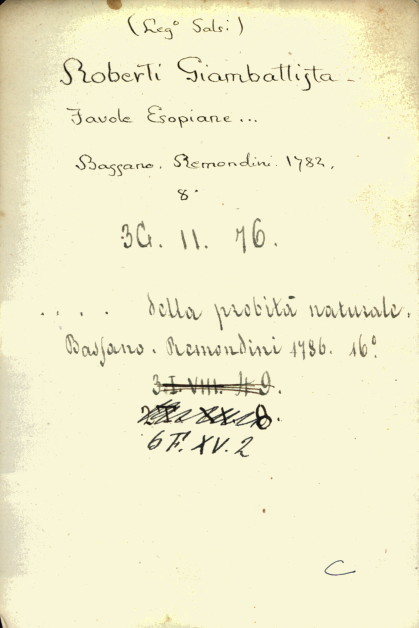 (Leg° Salsi)
Roberti Giambattista -
Favole Esopiane...
Bassano. Remondini. 1782.
8°
3G. 11. 76.
. . . . della probità naturale.
Bassano. Remondini 1786. 16°.
3.I.VIII. 49.
8.
6 F. XV. 2
C